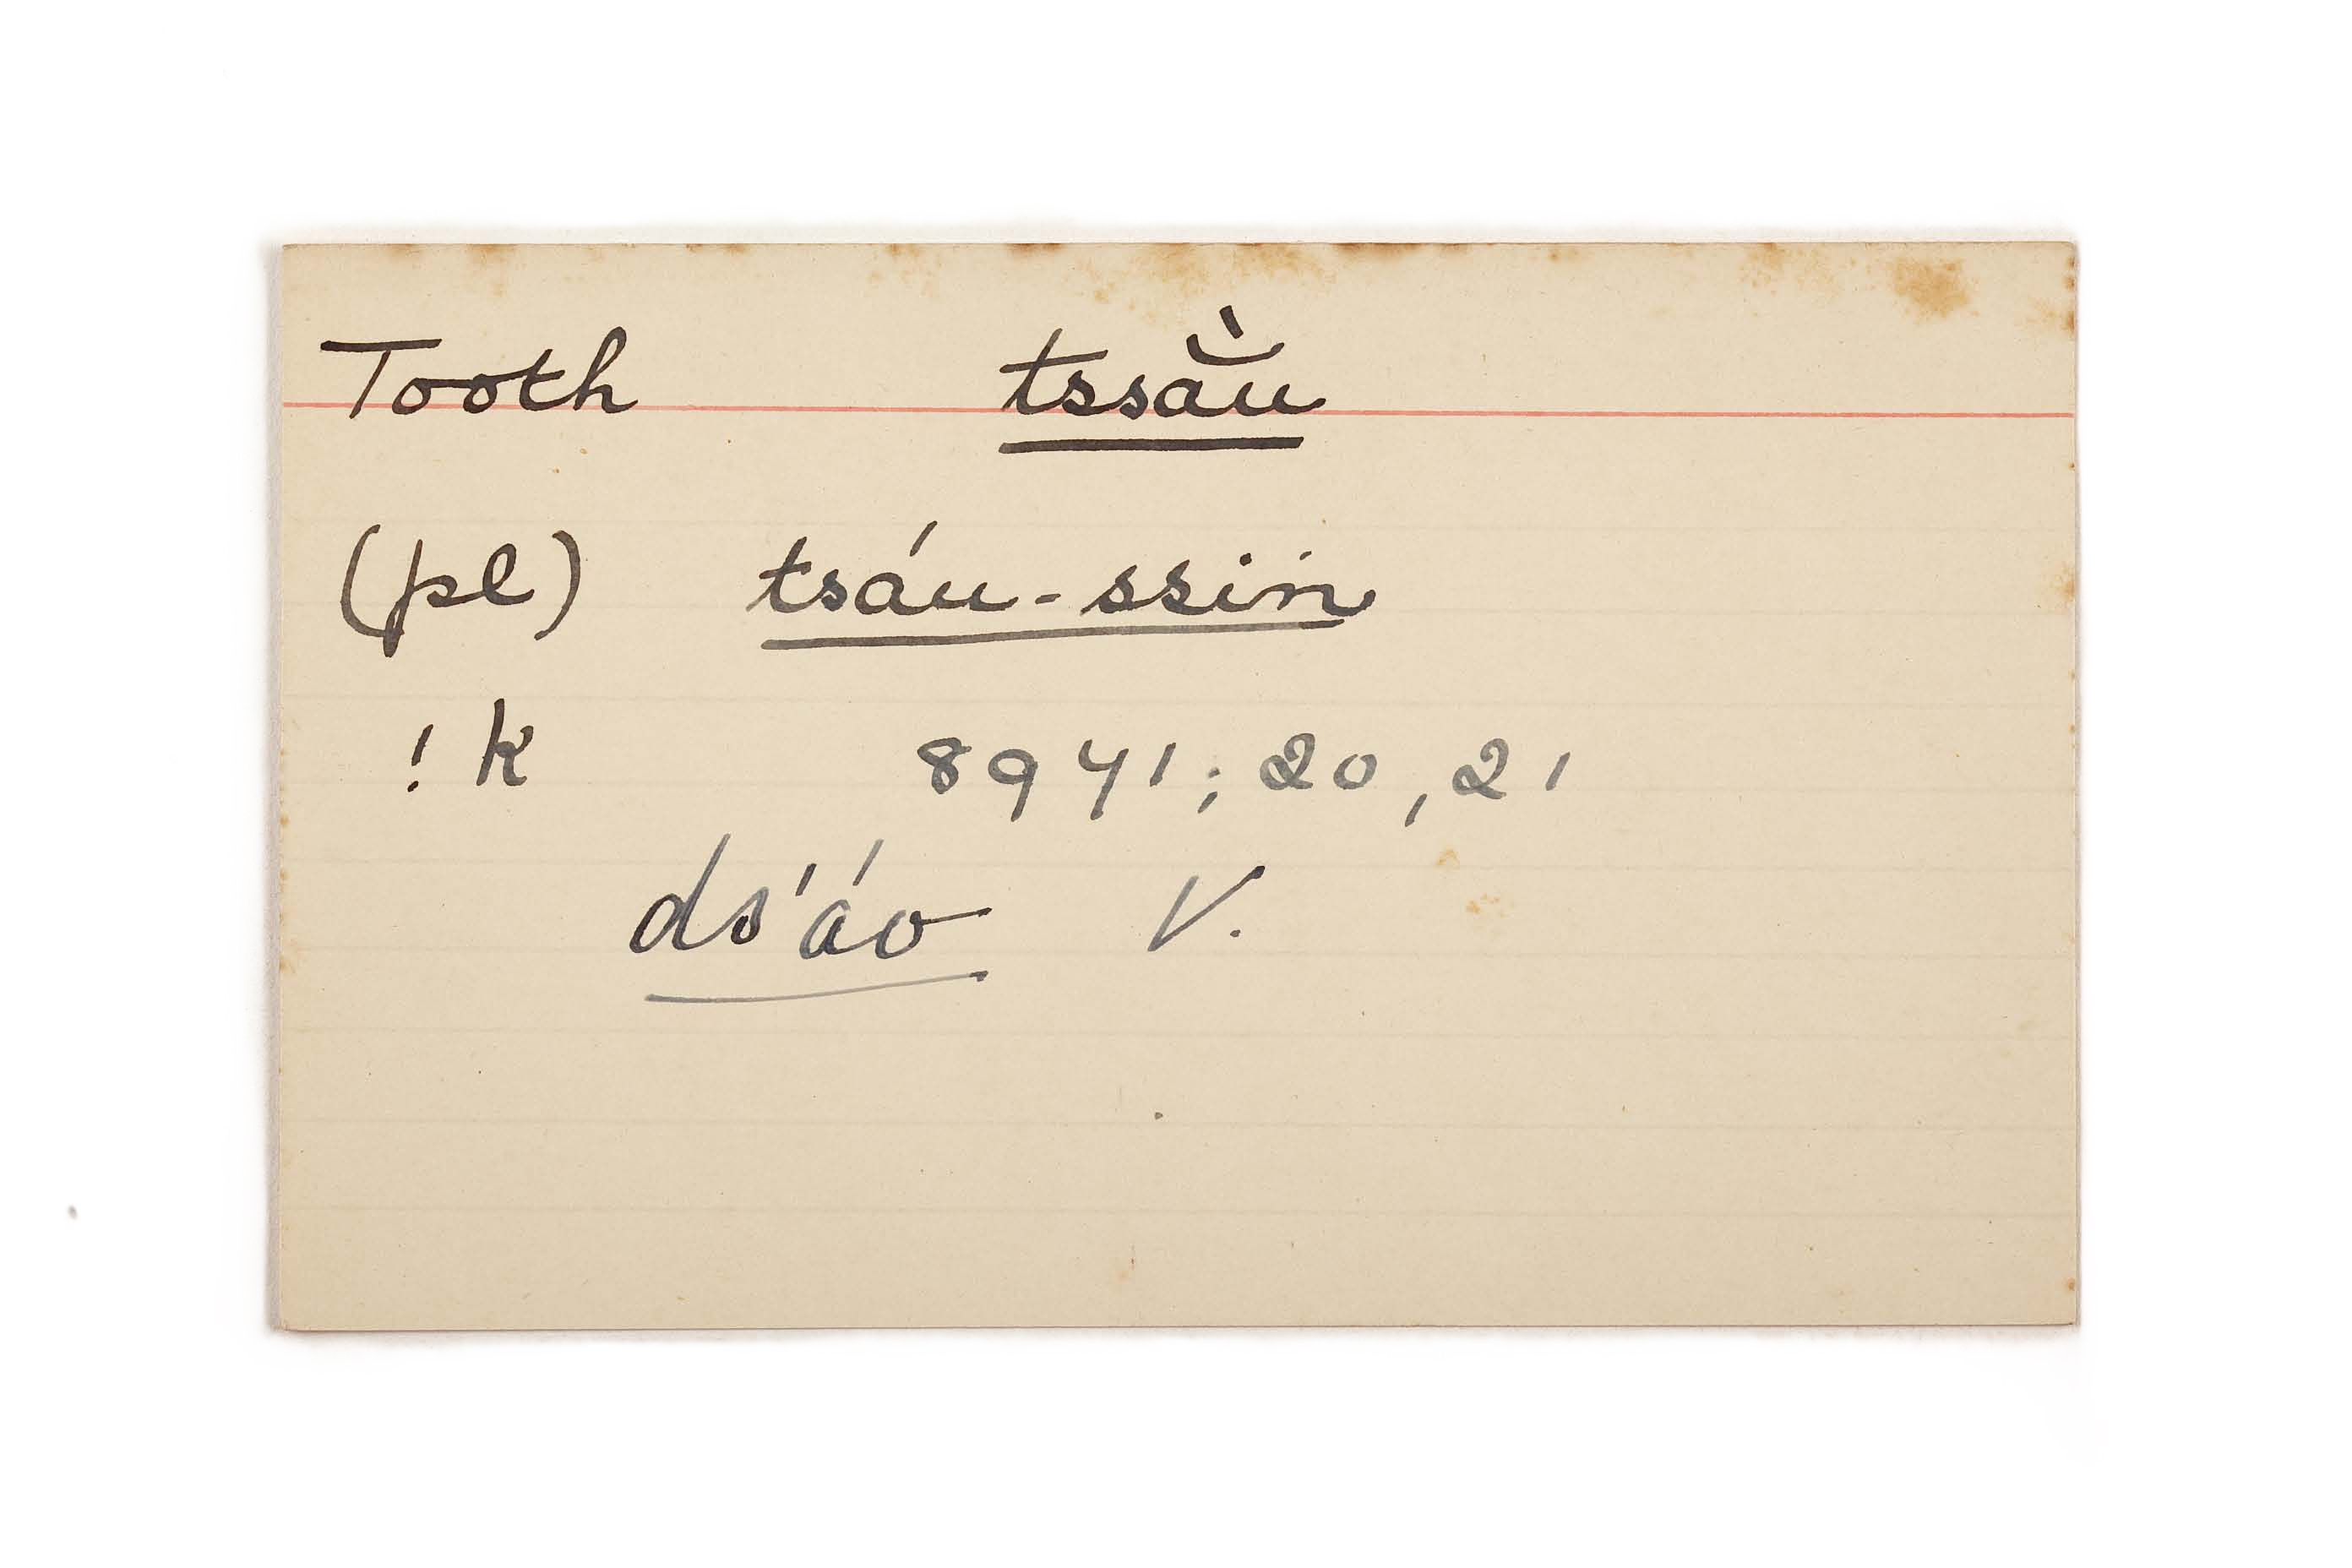 Tooth tssā̆̀u
(pl) tsáu-ssin
!k 8941; 20, 21
ds'áo V.